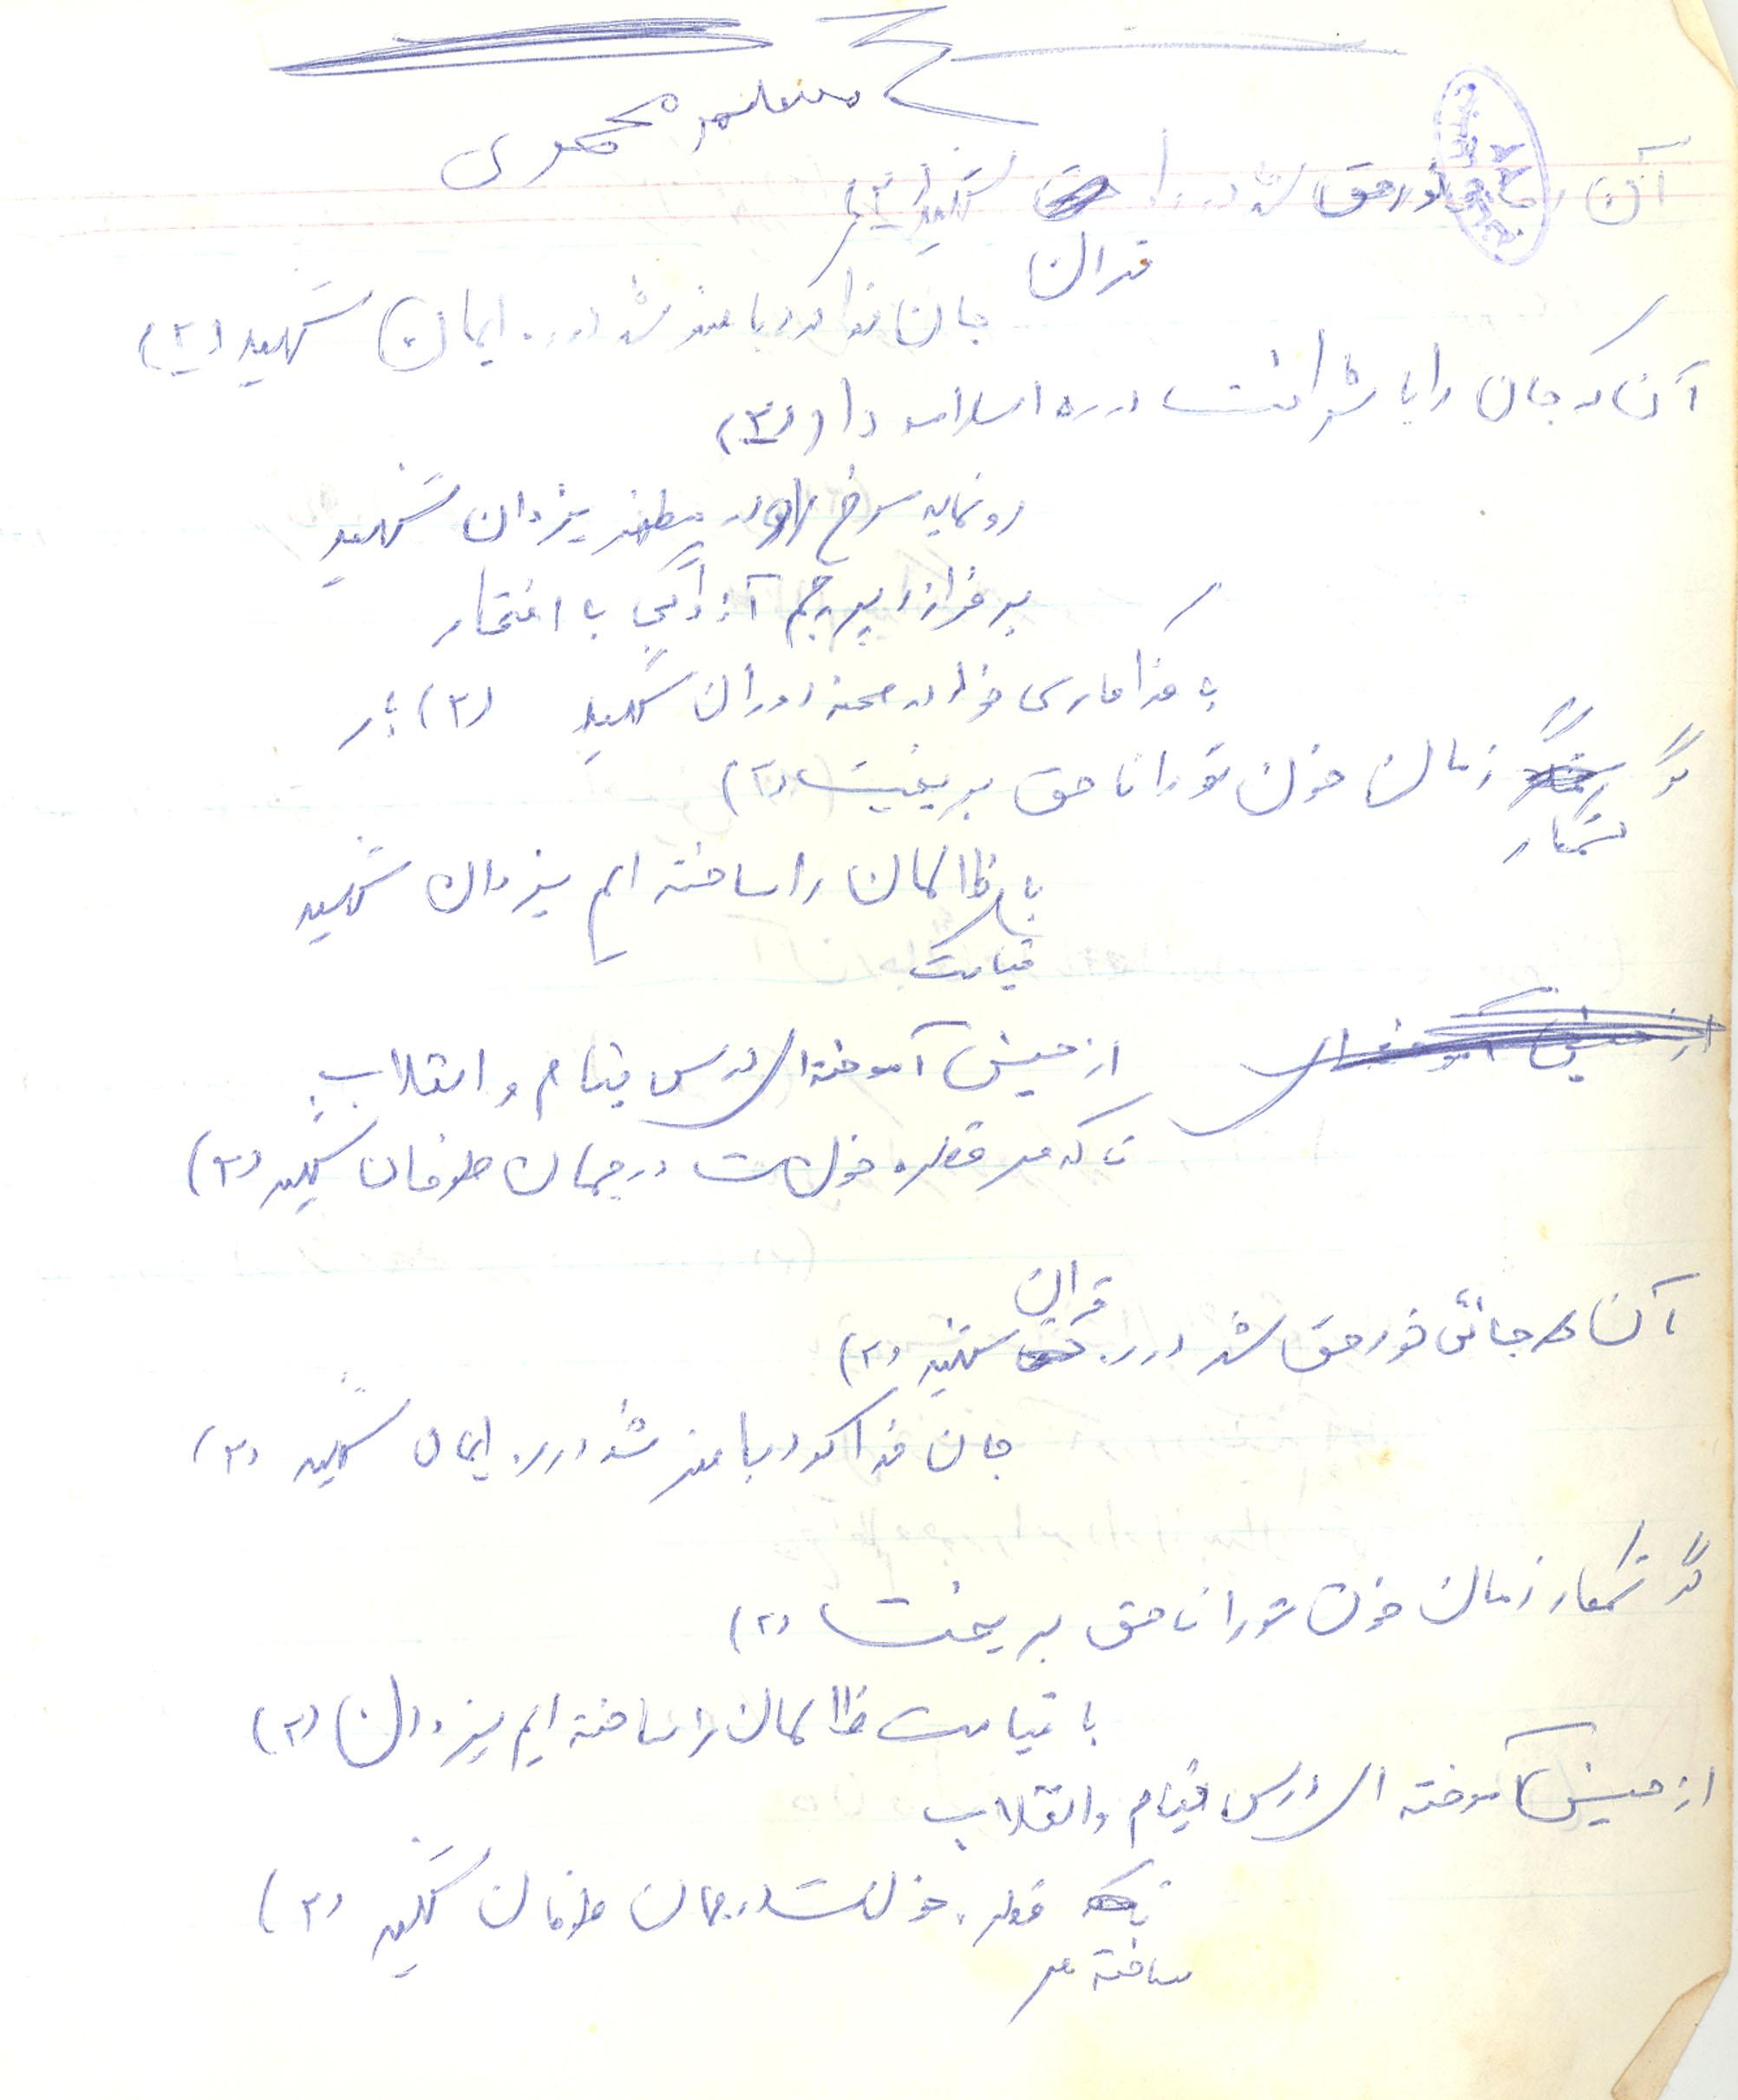 معلم محمودی
آن حق شد در شهید (۲)
قران
جان فدا کرد با هنر شد در ره ایمان شهید (۲)
آن که جان را با شرافت در ره اسلام داد (۲)
رو نماید سرخ یزدان شهید
بر فرازد پرچم آزادگی با افتخار
با فداکاری خود در صحنه دوران شهید (۲)
گر زمان خون تو را ناحق بریخت (۲)
ستمکار
با ظالمان را ساخته ایم یزدان شهید
قیامت
از حسین آموخته ای درس قیام و انقلاب
تا که هر قطره خونت در جهان طوفان شهید (۲)
قران
آن که جانش نور حق شد در ره شهید (۲)
جان فدا کرد با هنر شد در ره ایمان شهید (۲)
گر ستمکار زمان خون تو را ناحق بریخت (۲)
با قیامت ظالمان را ساخته ایم یزدان (۲)
از حسین آموخته ای درس قیام و انقلاب
قطره خونت در جهان طوفان شهید (۲)
ساخته هر